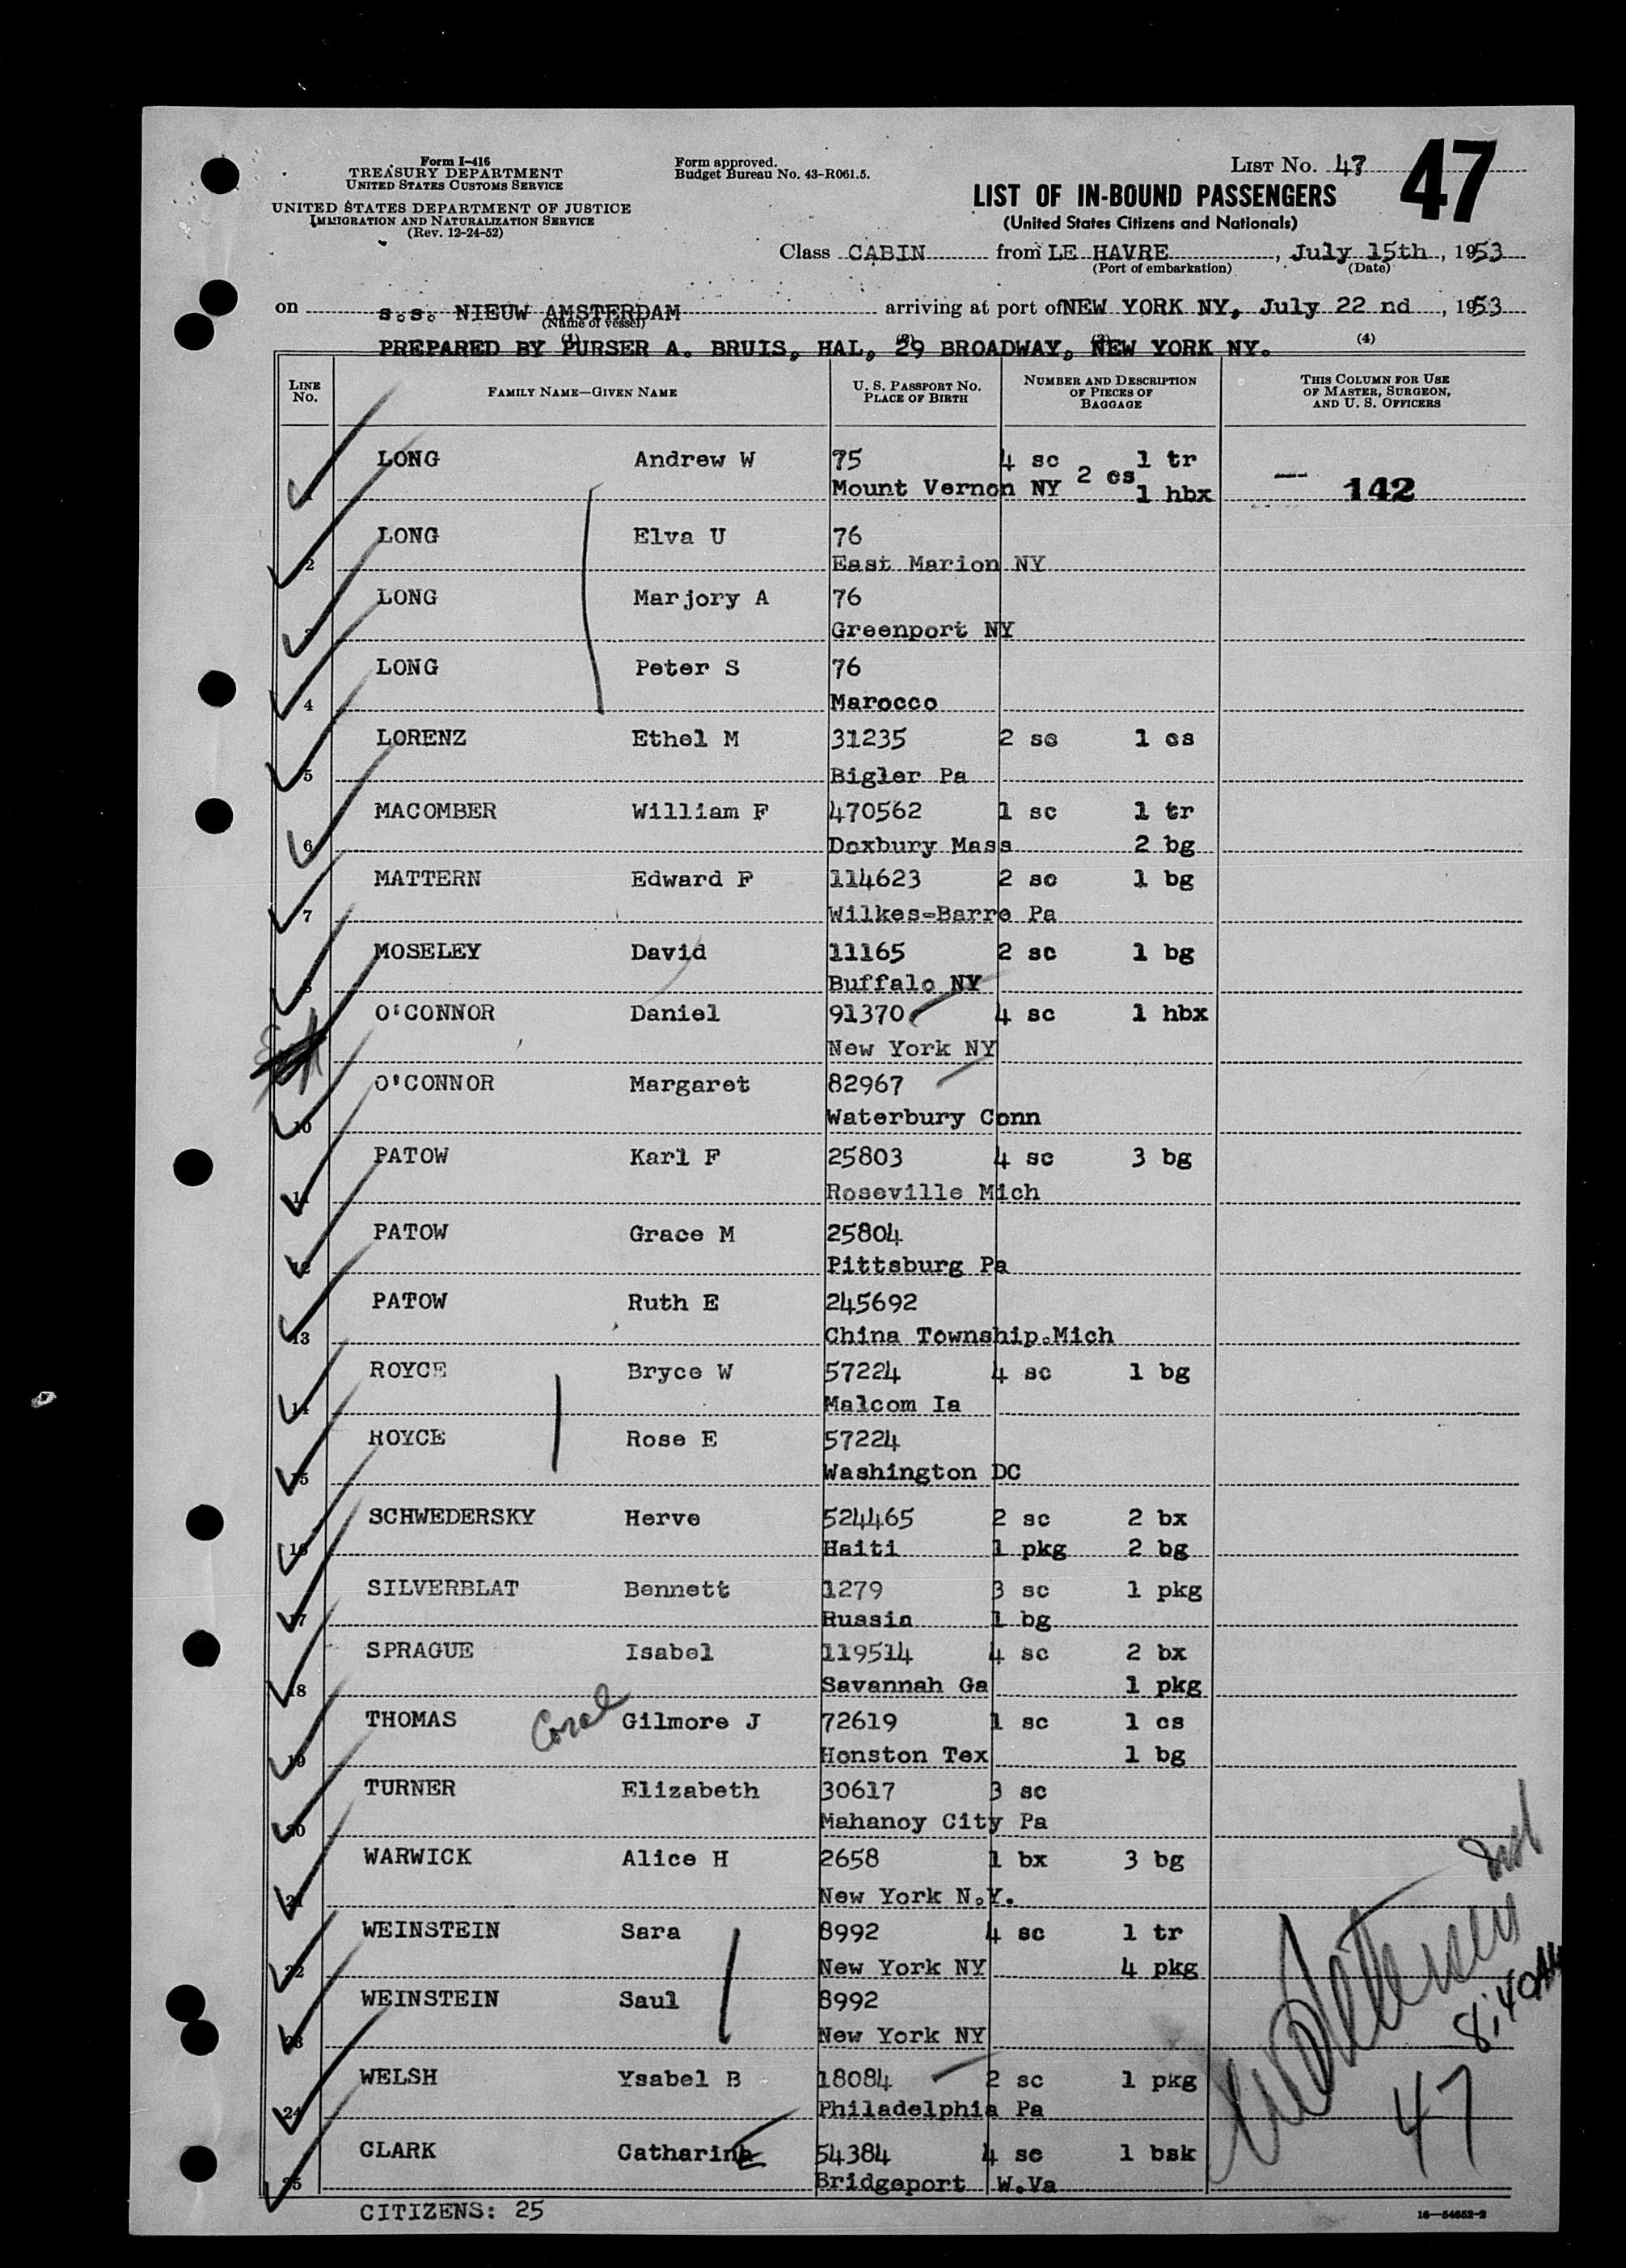 Form I-416
TREASURY DEPARTMENT
UNITED STATES CUSTOMS SERVICE
UNITED STATES DEPARTMENT OF JUSTICE
IMMIGRATION AND NATURALIZATION SERVICE
(Rev. 12-24-52)
Form approved.
Budget Bureau No. 43-R061.5.
LIST NO. 47 47
LIST OF IN-BOUND PASSENGERS
(United States Citizens and Nationals)
Class CABIN from LE HAVRE, July 15th, 1953
(Port of embarkation) (Date)
on s.s. NIEUW AMSTERDAM arriving at port of NEW YORK NY, July 22 nd, 1953
(Name of vessel)
PREPARED BY PURSER A. BRUIS, HAL, 29 BROADWAY, NEW YORK NY.
(1) (2) (3) (4)
LINE NO. FAMILY NAME—GIVEN NAME U. S. PASSPORT NO. PLACE OF BIRTH NUMBER AND DESCRIPTION OF PIECES OF BAGGAGE THIS COLUMN FOR USE OF MASTER, SURGEON, AND U. S. OFFICERS
LONG Andrew W 75 4 sc 1 tr
1 Mount Vernon NY 2 cs 1 hbx — 142
LONG Elva U 76
2 East Marion NY
LONG Marjory A 76
3 Greenport NY
LONG Peter S 76
4 Marocco
LORENZ Ethel M 31235 2 sc 1 cs
5 Bigler Pa
MACOMBER William F 470562 1 sc 1 tr
6 Doxbury Mass 2 bg
MATTERN Edward F 114623 2 sc 1 bg
7 Wilkes-Barre Pa
MOSELEY David 11165 2 sc 1 bg
8 Buffalo NY
O'CONNOR Daniel 91370 4 sc 1 hbx
New York NY
O'CONNOR Margaret 82967
10 Waterbury Conn
PATOW Karl F 25803 4 sc 3 bg
11 Roseville Mich
PATOW Grace M 25804
12 Pittsburg Pa
PATOW Ruth E 245692
13 China Township.Mich
ROYCE Bryce W 57224 4 sc 1 bg
14 Malcom Ia
ROYCE Rose E 57224
15 Washington DC
SCHWEDERSKY Herve 524465 2 sc 2 bx
16 Haiti 1 pkg 2 bg
SILVERBLAT Bennett 1279 3 sc 1 pkg
17 Russia 1 bg
SPRAGUE Isabel 119514 4 sc 2 bx
18 Savannah Ga 1 pkg
THOMAS Gilmore J 72619 1 sc 1 cs
19 Honston Tex 1 bg
TURNER Elizabeth 30617 3 sc
20 Mahanoy City Pa
WARWICK Alice H 2658 1 bx 3 bg
21 New York N.Y.
WEINSTEIN Sara 8992 4 sc 1 tr
22 New York NY 4 pkg
WEINSTEIN Saul 8992
23 New York NY
8:40AM
WELSH Ysabel B 18084 2 sc 1 pkg
24 Philadelphia Pa
47
CLARK CatharinE 54384 4 sc 1 bsk
25 Bridgeport W.Va
CITIZENS: 25
16—54652-2